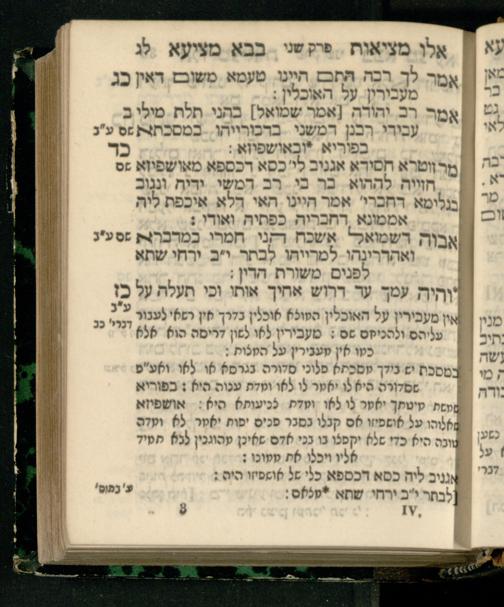 אלו מציאות פרק שני בבא מציעא לג
אמר לך רבה התם היינו טעמא משום דאין כג
מעבירין על האוכלין :
אמר רב יהודה [אמר שמואל] בהני תלת מילי ב
עבידי רבנן דמשני בדבורייהו במסכתא שם ע״ב
בפוריא *ובאושפיזא : כד
מר זוטרא חסידא אגניב לי׳ כסא דכספא מאושפיזא שם
חזייה לההוא בר בי רב דמשי ידיה ונגוב
בגלימא דחברי׳ אמר היינו האי דלא איכפת ליה
אממונא דחבריה כפתיה ואודי :
אבוה דשמואל אשכח הני חמרי במדברא שם ע״ב
ואהדרינהו למרייהו לבתר י״ב ירחי שתא
לפנים משורת הדין :
*והיה עמך עד דרוש אחיך אותו וכי תעלה על כז
ע״ב
אין מעבירין על האוכלין המוצא אוכלין בדרך אין רשאי לעבור
עליהם ולהניחם שם : מעבירין לאו לשון דריסה הוא אלא דברי׳ כב
כמו אין מעבירין על המצות :
במסכת יש בידך מסכתא פלוני סדורה בגרסא או לאו ואע״פ
שסדורה היא לו יאמר לו לאו ומדת ענוה היא : בפוריא
שמשת מיטתך יאמר לו לאו ומדת צניעותא היא : אושפיזא
שאלוהו על אושפיזו אם קבלו בסבר פנים יפות יאמר לא ומדה
טובה היא כדי שלא יקפצו בו בני אדם שאינן מהוגנין לבא תמיד
אליו ויכלו את ממונו :
אגניב ליה כסא דכספא כלי של אושפיזו היה :
[לבתר י״ב ירחי שתא *מלאם : ע׳ בתוס׳
8 IV.